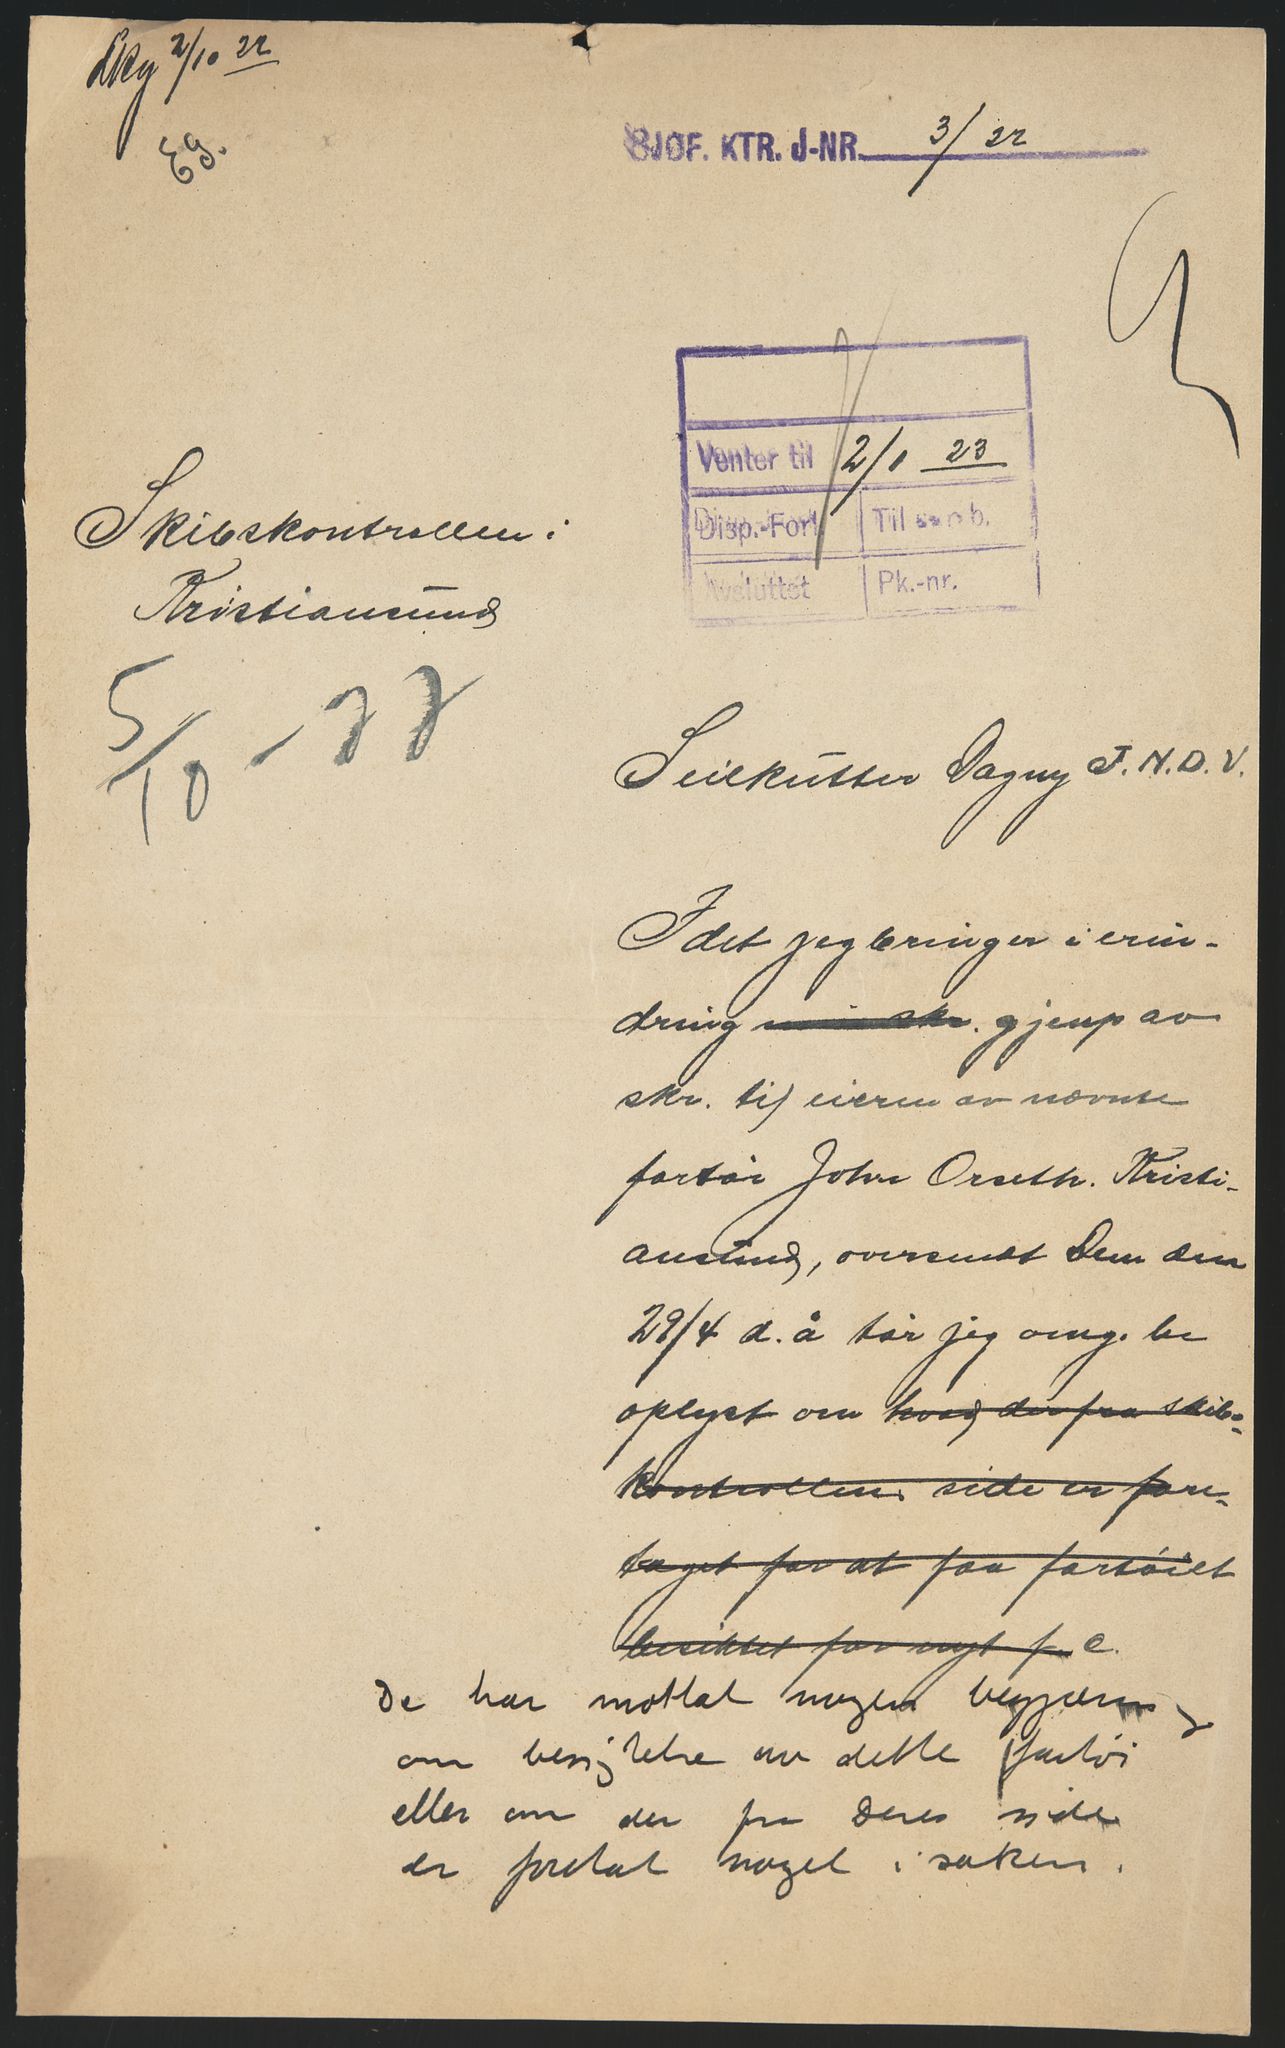 2/10 22
Eg.
SJØF. KTR. J-NR. 3/22
Venter til 2/1 23
Disp.-Forl. Til
Avsluttet Pk.-nr.
Skibskontrollen i
Kristiansund
5/10 - 22
Seilkutter Dagny T.N.D.V.
Idet jeg bringer i erin-
dring min skr. gjenp av
skr. til eieren av nævnte
fartøi John Orseth. Kristi-
ansund, oversendt Dem den
29/4 d. å tør jeg omg. be
oplyst om hvad der fra skibs-
kontrollens side er fore-
taget for at faa fartøiet
besiktet for nyt f. c.
De har mottat nogen begjæring
om besigtelse av dette fartøi
eller om der fra Deres side
er foretat noget i saken.